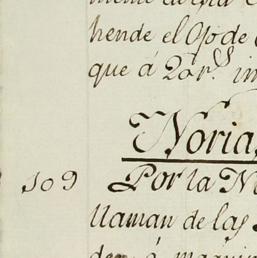 hende el Ojo de
que á 20 r.s in
Norias
109 Por la N
llaman de las